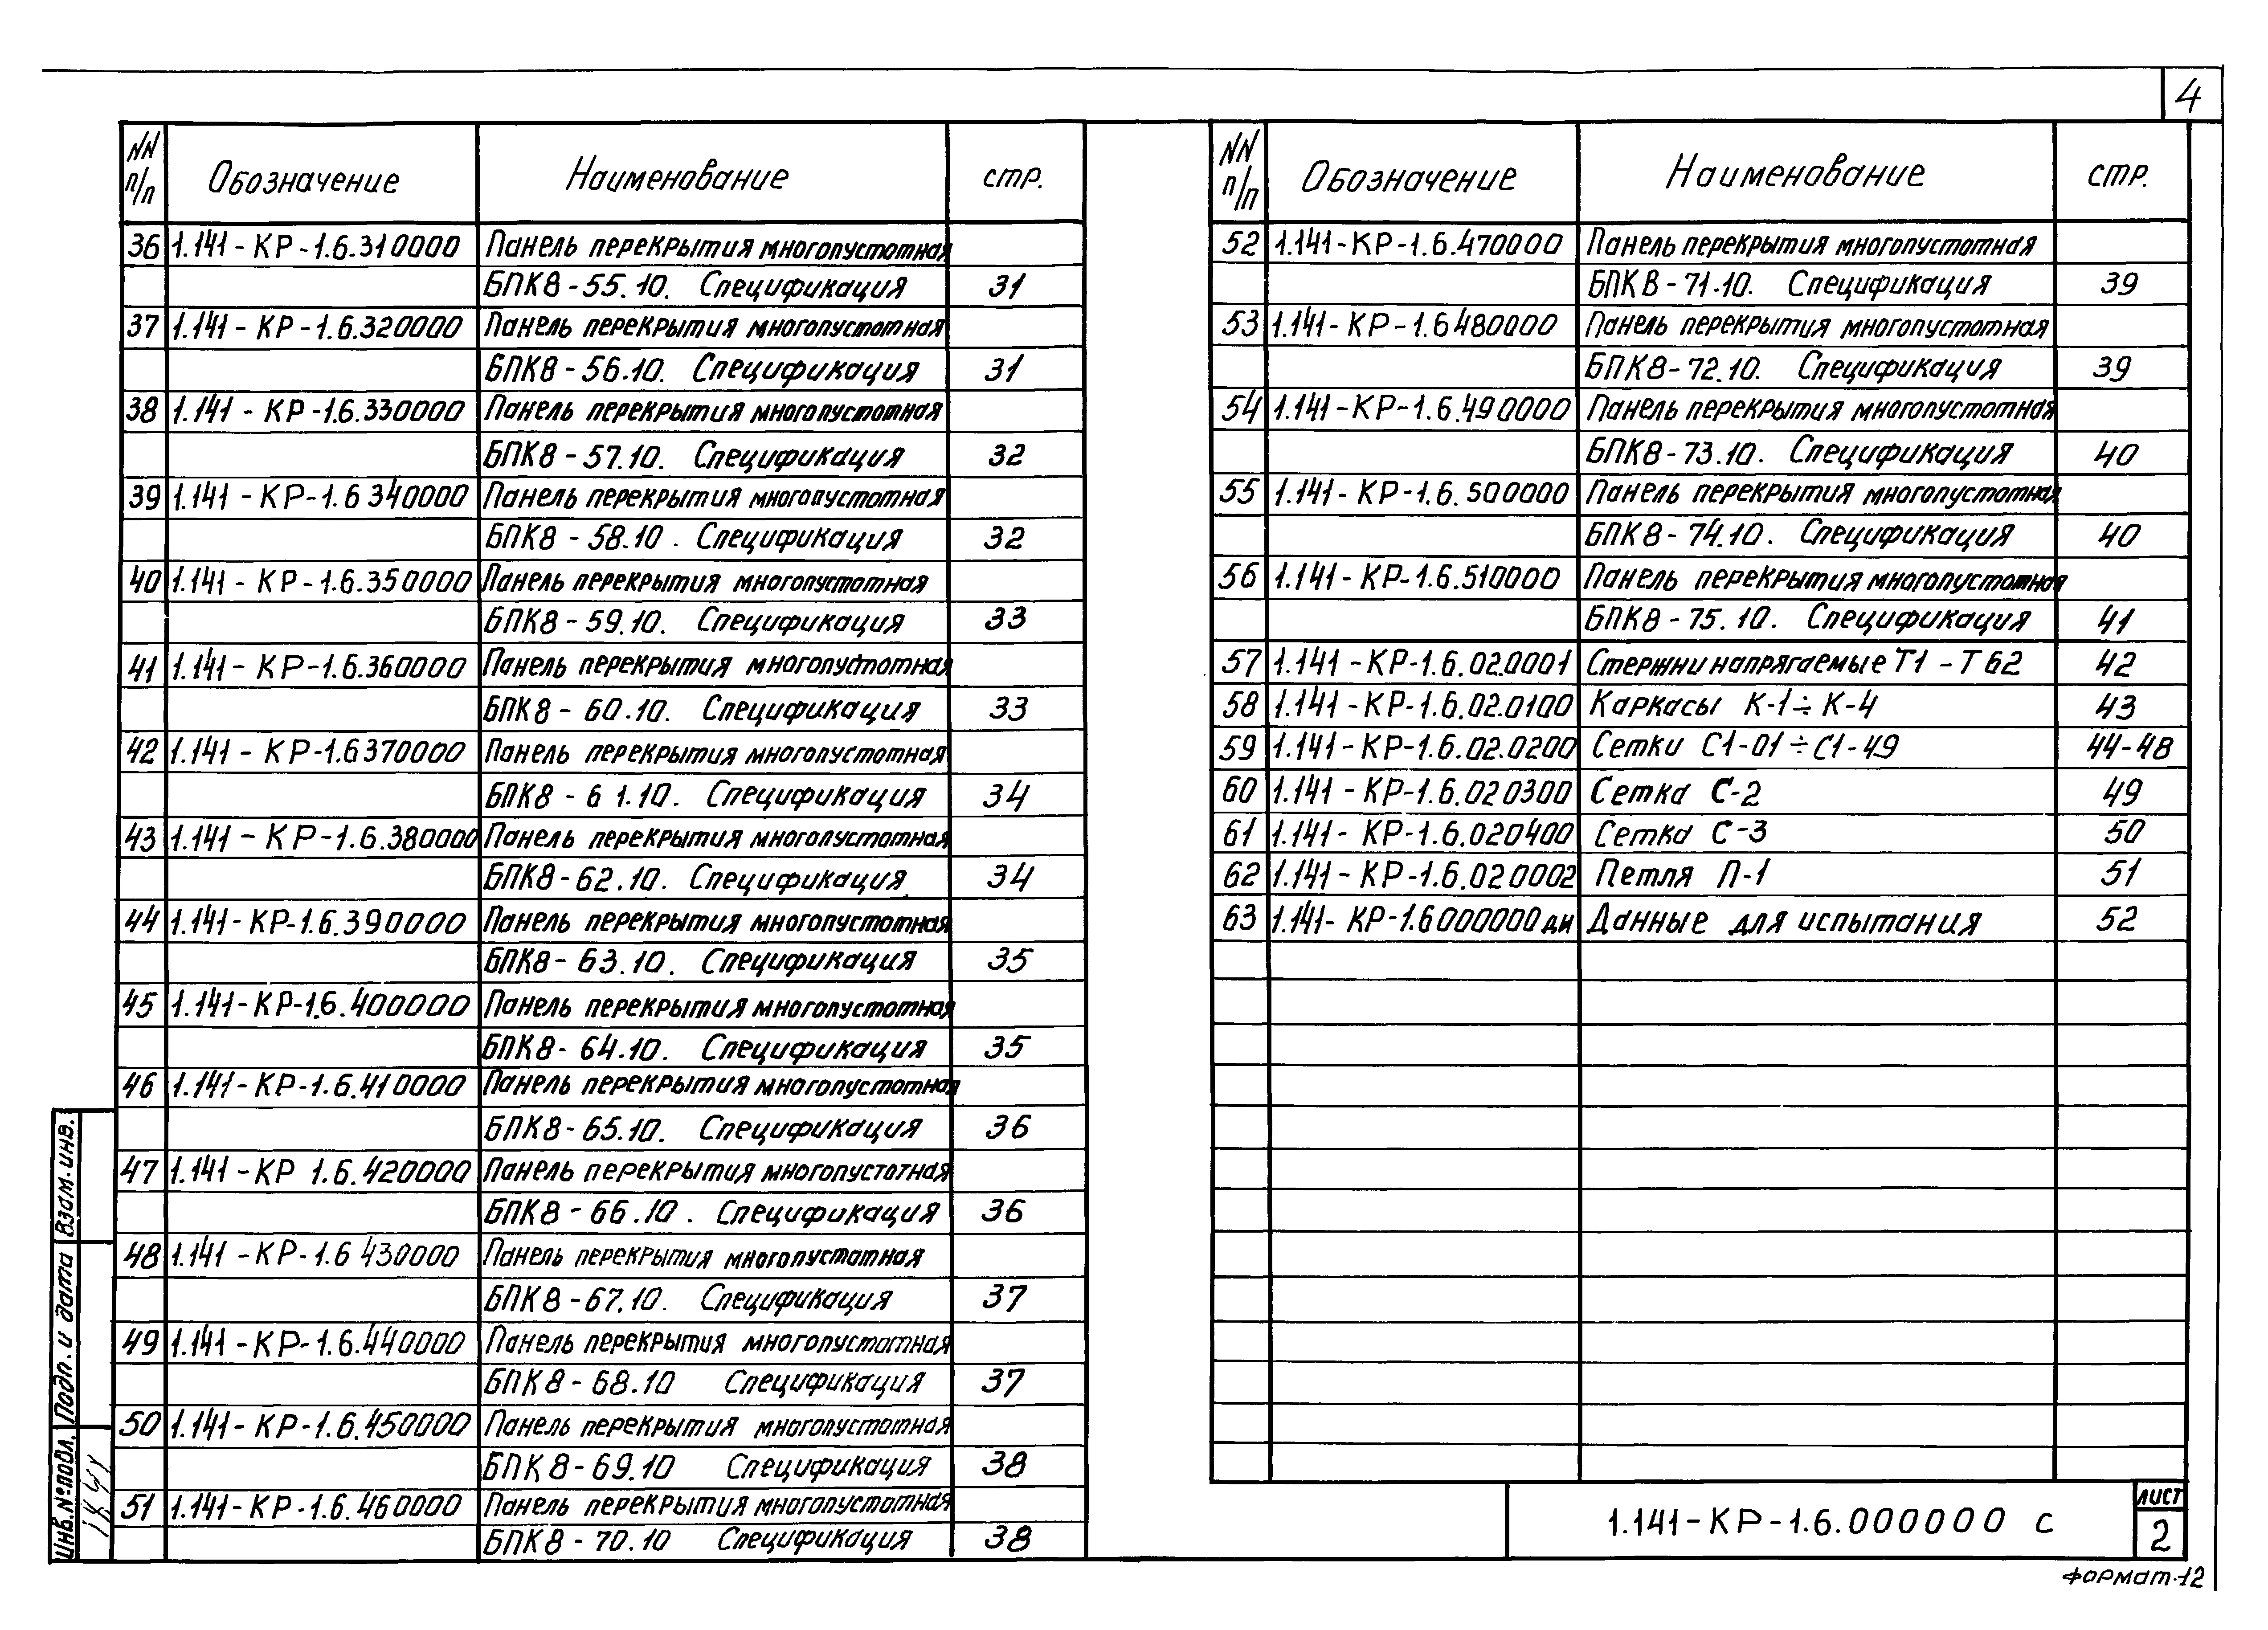 4
NN п/п Обозначение Наименование стр.
36 1.141-КР-1.6.310000 Панель перекрытия многопустотная
БПК8-55.10. Спецификация 31
37 1.141-КР-1.6.320000 Панель перекрытия многопустотная
БПК8-56.10. Спецификация 31
38 1.141-КР-1.6.330000 Панель перекрытия многопустотная
БПК8-57.10. Спецификация 32
39 1.141-КР-1.6 340000 Панель перекрытия многопустотная
БПК8-58.10. Спецификация 32
40 1.141-КР-1.6.350000 Панель перекрытия многопустотная
БПК8-59.10. Спецификация 33
41 1.141-КР-1.6.360000 Панель перекрытия многопустотная
БПК8-60.10. Спецификация 33
42 1.141-КР-1.6370000 Панель перекрытия многопустотная
БПК8-61.10. Спецификация 34
43 1.141-КР-1.6.380000 Панель перекрытия многопустотная
БПК8-62.10. Спецификация. 34
44 1.141-КР-1.6.390000 Панель перекрытия многопустотная
БПК8-63.10. Спецификация 35
45 1.141-КР-1.6.400000 Панель перекрытия многопустотная
БПК8-64.10. Спецификация 35
46 1.141-КР-1.6.410000 Панель перекрытия многопустотная
БПК8-65.10. Спецификация 36
47 1.141-КР 1.6.420000 Панель перекрытия многопустотная
БПК8-66.10. Спецификация 36
48 1.141-КР-1.6 430000 Панель перекрытия многопустотная
БПК8-67.10. Спецификация 37
49 1.141-КР-1.6.440000 Панель перекрытия многопустотная
БПК8-68.10 Спецификация 37
50 1.141-КР-1.6.450000 Панель перекрытия многопустотная
БПК8-69.10 Спецификация 38
51 1.141-КР-1.6.460000 Панель перекрытия многопустотная
БПК8-70.10 Спецификация 38
NN п/п Обозначение Наименование стр.
52 1.141-КР-1.6.470000 Панель перекрытия многопустотная
БПК8-71.10. Спецификация 39
53 1.141-КР-1.6480000 Панель перекрытия многопустотная
БПК8-72.10. Спецификация 39
54 1.141-КР-1.6.490000 Панель перекрытия многопустотная
БПК8-73.10. Спецификация 40
55 1.141-КР-1.6.500000 Панель перекрытия многопустотная
БПК8-74.10. Спецификация 40
56 1.141-КР-1.6.510000 Панель перекрытия многопустотная
БПК8-75.10. Спецификация 41
57 1.141-КР-1.6.02.0001 Стержни напрягаемые Т1-Т62 42
58 1.141-КР-1.6.02.0100 Каркасы К-1÷К-4 43
59 1.141-КР-1.6.02.0200 Сетки С1-01÷С1-49 44-48
60 1.141-КР-1.6.020300 Сетка С-2 49
61 1.141-КР-1.6.020400 Сетка С-3 50
62 1.141-КР-1.6.020002 Петля П-1 51
63 1.141-КР-1.6000000 ди Данные для испытания 52
Взам.инв.
Подп. и дата
Инв.№подл.
1.141-КР-1.6.000000 с
лист
2
Формат-12